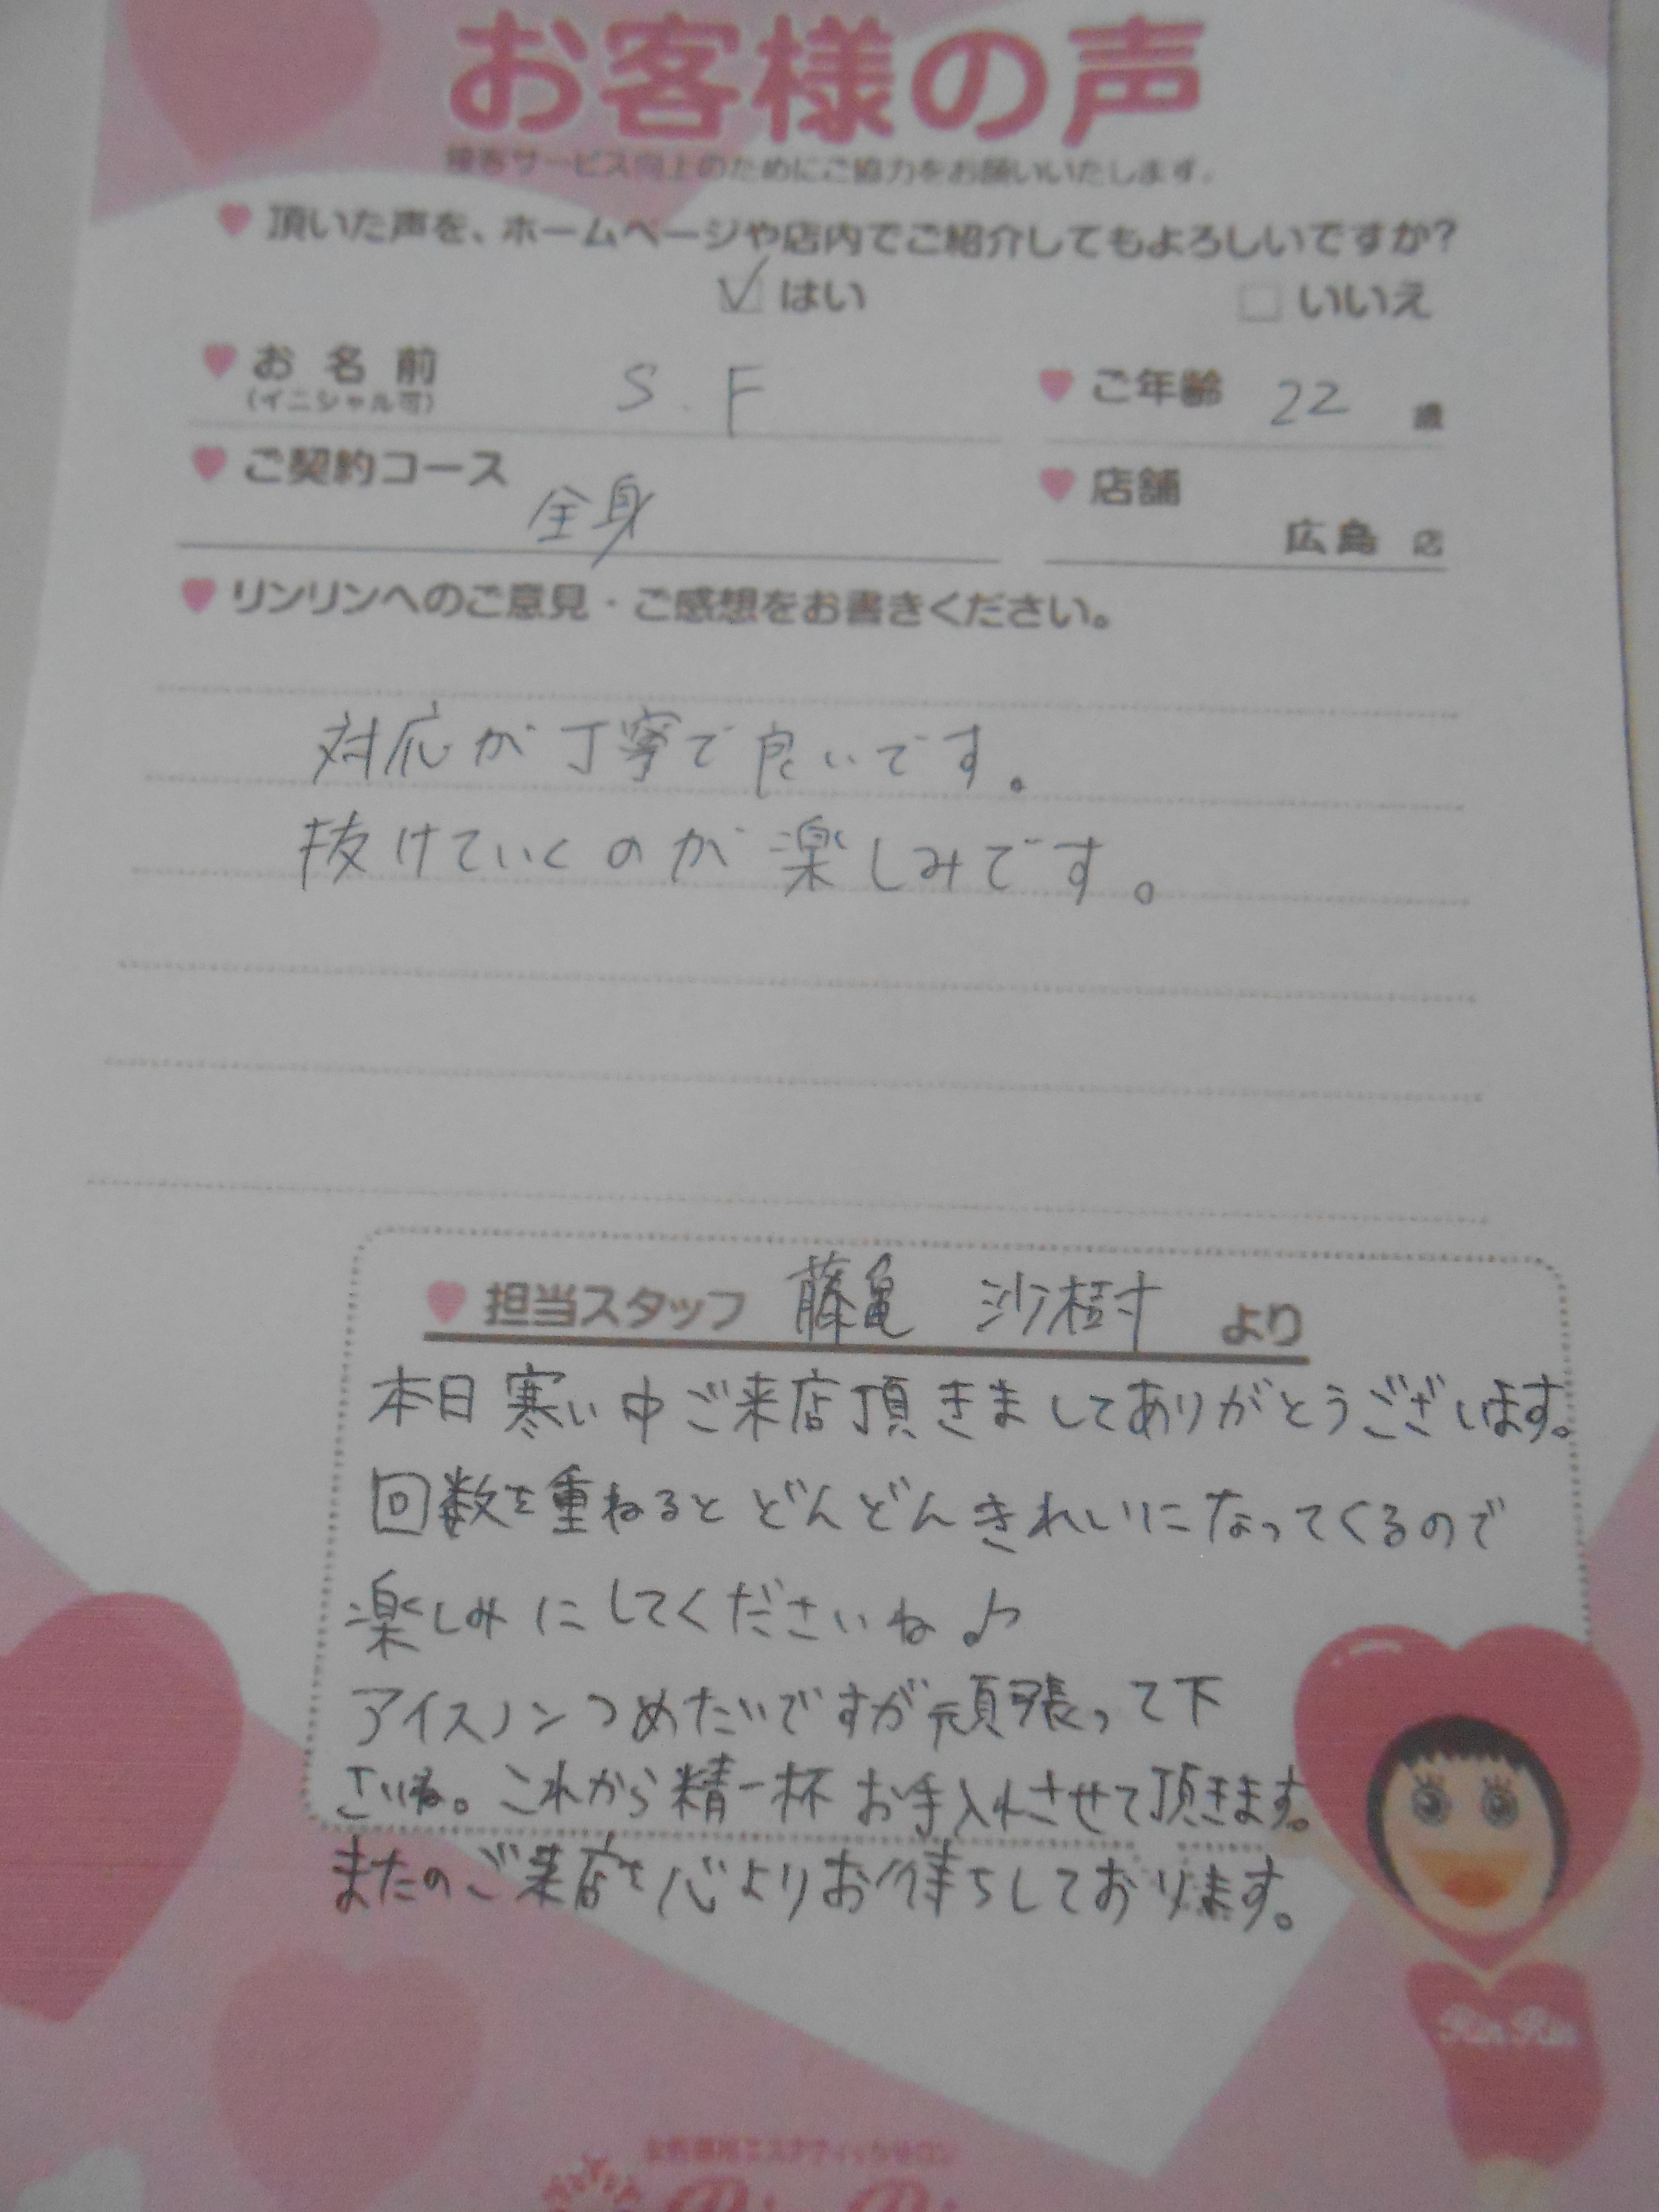 お客様の声
接客サービス向上のためにご協力をお願いいたします。
頂いた声を、ホームページや店内でご紹介してもよろしいですか?
はい いいえ
お名前 S.F ご年齢 22 歳
(イニシャル可)
ご契約コース 全身 店舗 広島 店
リンリンへのご意見・ご感想をお書きください。
対応が丁寧で良いです。
抜けていくのが楽しみです。
担当スタッフ 藤亀 沙樹 より
本日寒い中ご来店頂きましてありがとうございます。
回数を重ねるとどんどんきれいになってくるので
楽しみにしてくださいね♪
アイスノンつめたいですが頑張って下
さいね。これから精一杯お手入れさせて頂きます。
またのご来店を心よりお待ちしております。
RinRin
女性専用エステティックサロン